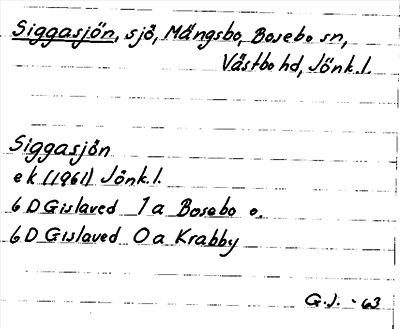 Siggasjön, sjö, Mängsbo, Bosebo sn,
Västbo hd, Jönk.l.
Siggasjön
ek (1961) Jönk.l.
6 D Gislaved 1 a Bosebo o.
6 D Gislaved 0 a Krabby
G.J. -63